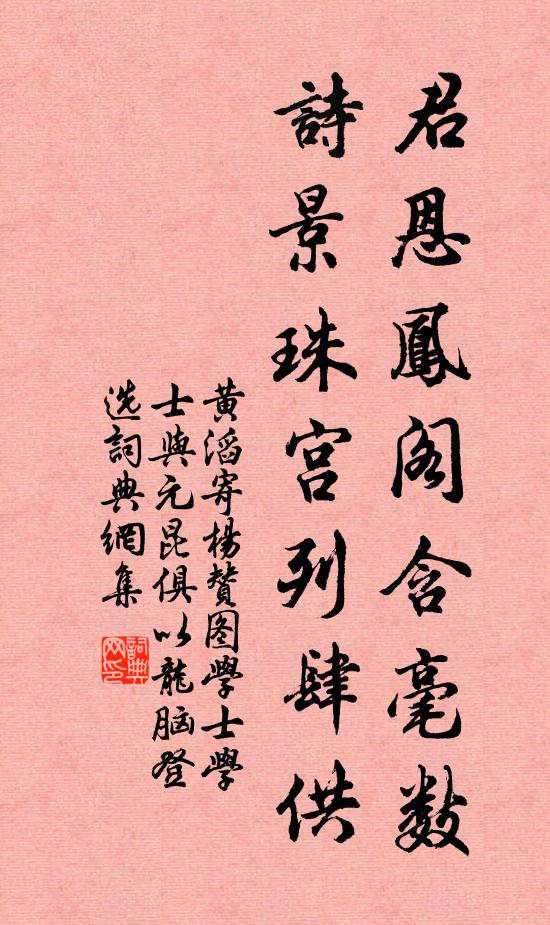 君恩鳳阁含毫數
詩景珠宫列肆供
黄滔寄楊贊图學士學
士與元昆俱以龍脑登
选詞典網集
詞典
网印